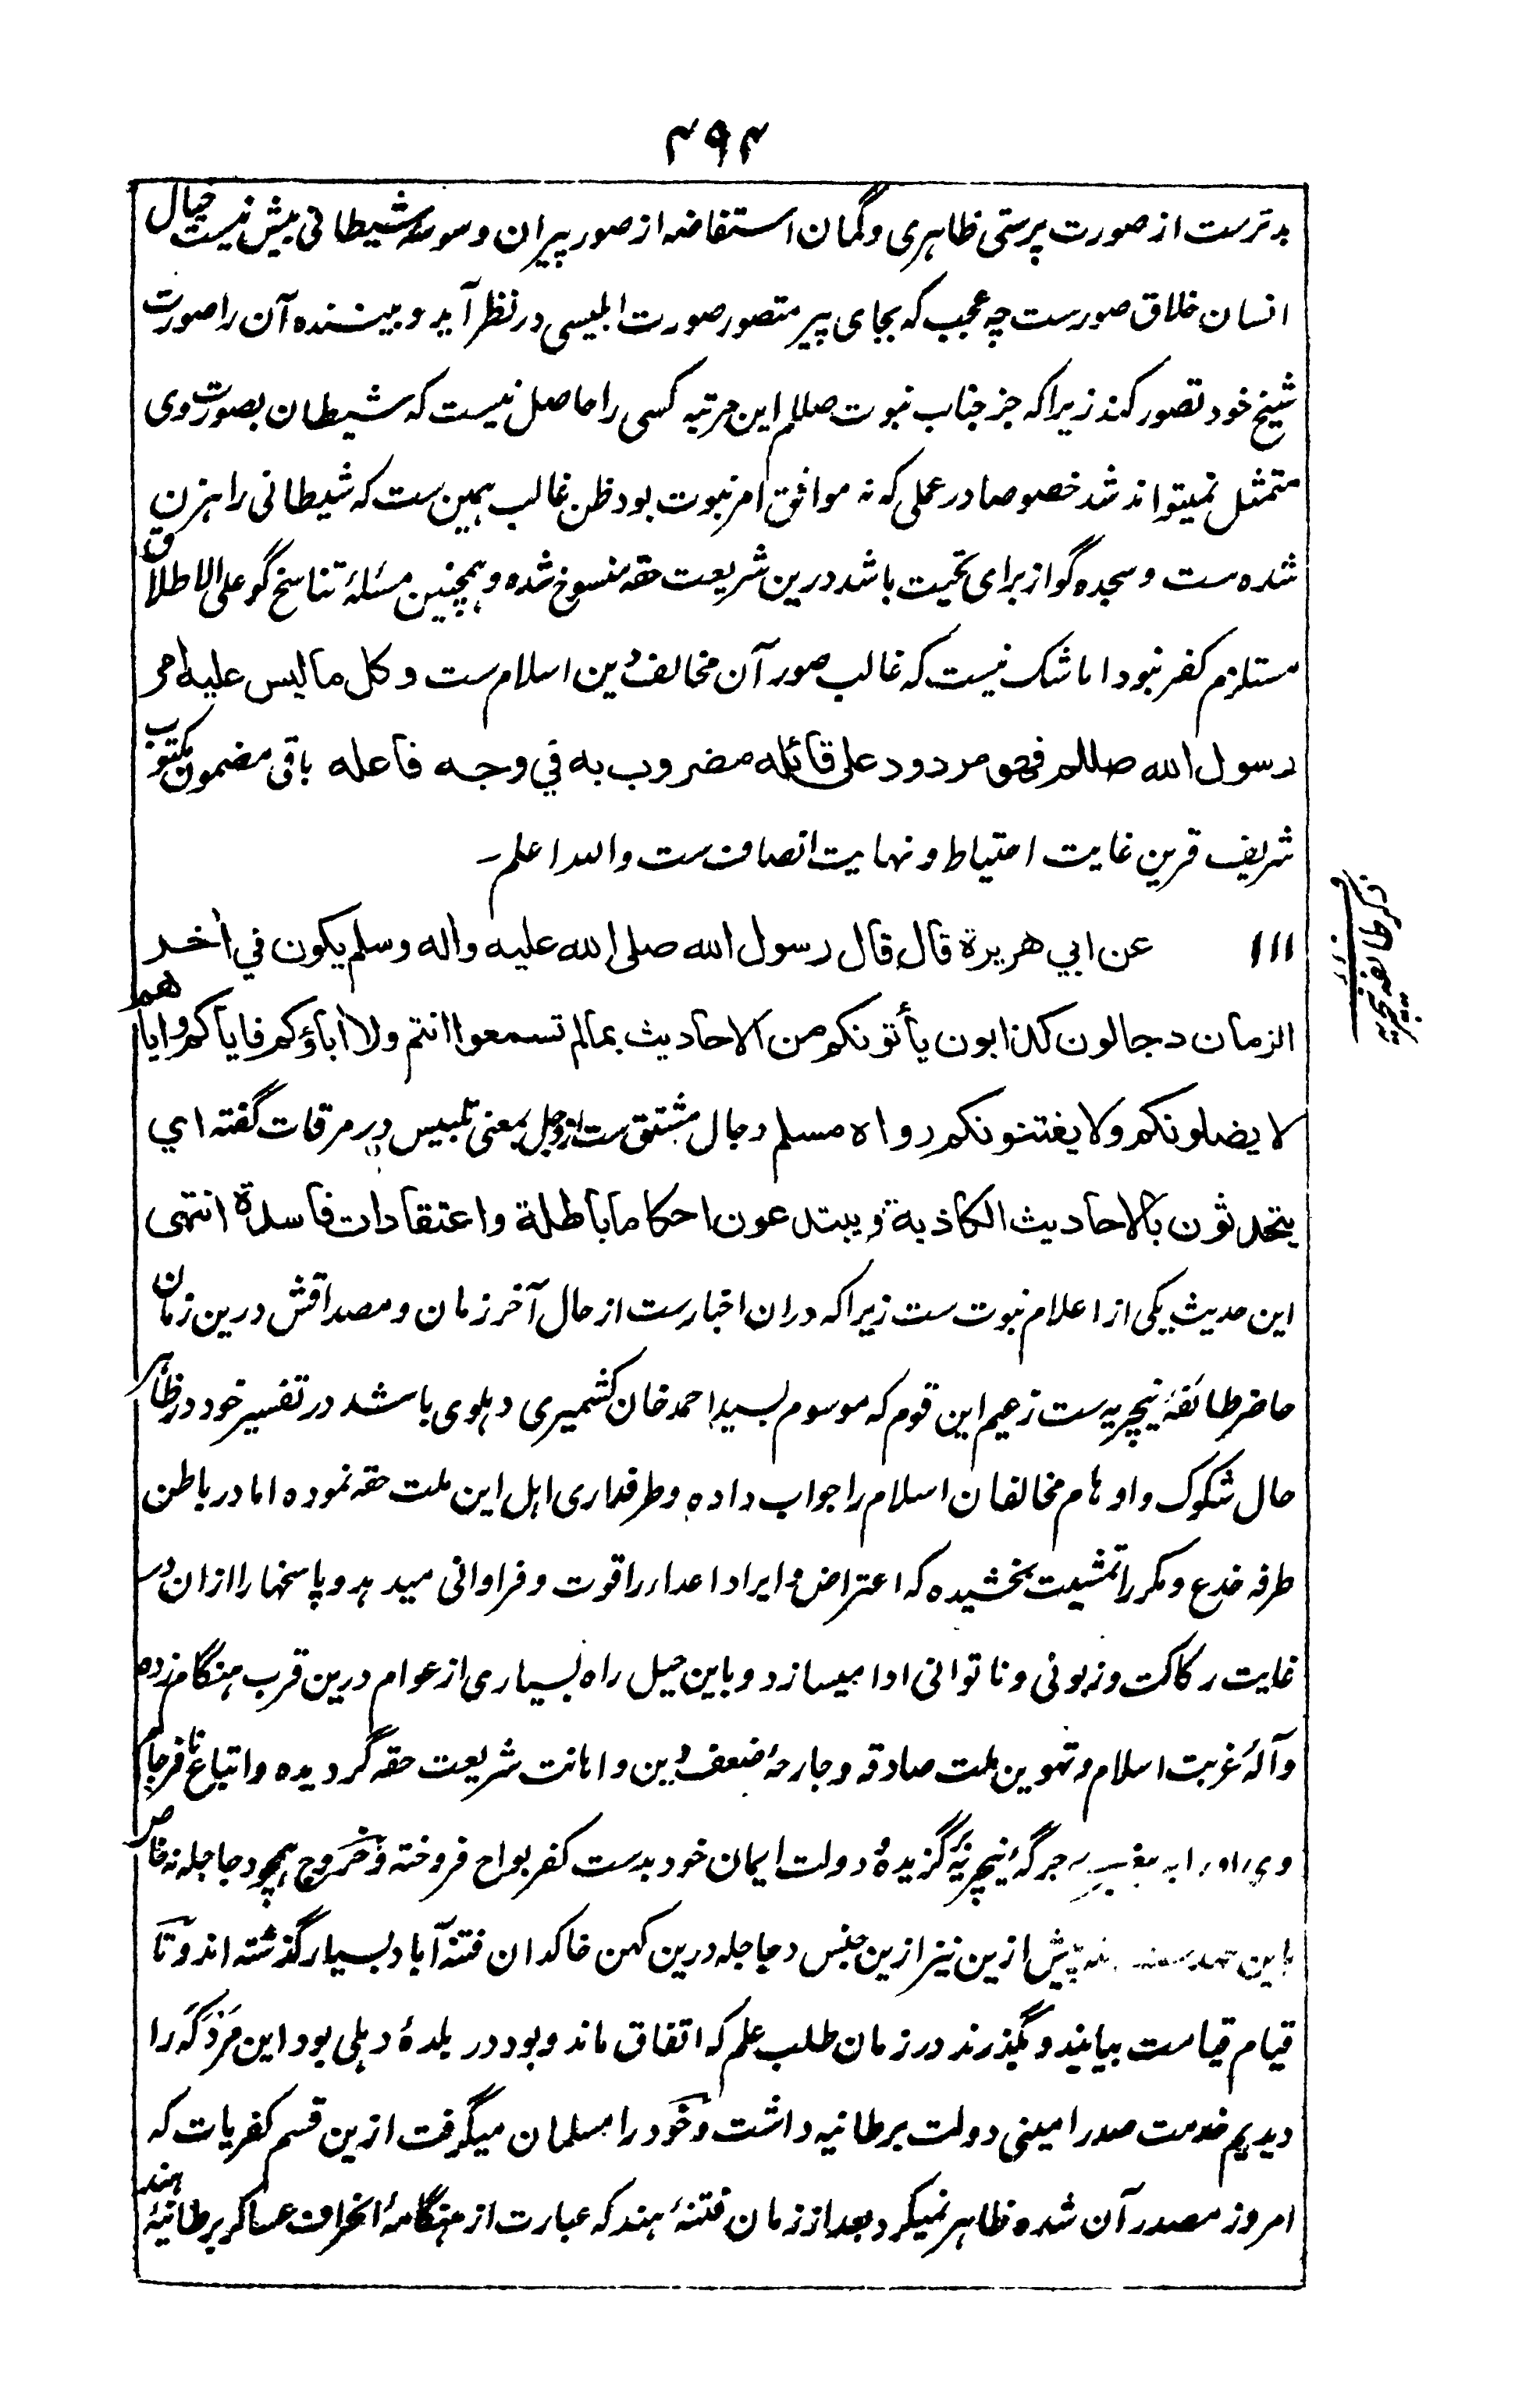 ۴۹۴
بدترست از صورت پرستی ظاهری و گمان استفاضه از صور پیران وسوسهٔ شیطانی بیش نیست خیال
انسان خلاق صورست چه عجب که بجای پیر متصور صورت ابلیسی در نظر آید و بیننده آن را صورت
شیخ خود تصور کند زیرا که جز جناب نبوت صللم این مرتبه کسی را حاصل نیست که شیطان بصورت وی
متمثل نمیتواند شد خصوصا در عملی که نه موافق امر نبوت بود ظن غالب همین ست که شیطانی راهزن
شده ست و سجده گو از برای تحیت باشد درین شریعت حقه منسوخ شده و همچنین مسئلهٔ تناسخ گو علی الاطلاق
مستلزم کفر نبود اما شک نیست که غالب صور آن مخالف دین اسلام ست و کل ما لیس علیه امر
رسول الله صللم فهو مردود علی قائله مضروب به في وجه فاعله باقی مضمون مکتوب
شریف قرین غایت احتیاط و نهایت انصاف ست والله اعلم ـ
۱۱۱ عن ابي هريرة قال قال رسول الله صلى الله عليه واله وسلم يكون في اخر
الزمان دجالون كذابون يأتونكم من الاحاديث بما لم تسمعوا انتم ولا اباؤكم فاياكم واياهم
لا يضلونكم ولا يفتنونكم رواه مسلم دجال مشتق ست از دجل بمعنی تلبیس در مرقات گفته اي
يتحدثون بالاحاديث الكاذبة ويبتدعون احكاما باطلة واعتقادات فاسدة انتهی
این حدیث یکی از اعلام نبوت ست زیرا که دران اخبارست از حال آخر زمان و مصداقش درین زمان
حاضر طائفهٔ نیچریه ست زعیم این قوم که موسوم بسید احمد خان کشمیری دهلوی باشد در تفسیر خود در ظاهر
حال شکوک و اوهام مخالفان اسلام را جواب داده و طرفداری اهل این ملت حقه نموده اما در باطن
طرفه خدع و مکر را تمشیت بخشیده که اعتراض و ایراد اعداء را قوت و فراوانی میدهد و پاسخها را ازان در
غایت رکاکت و زبونی و ناتوانی ادا میسازد و باین حیل راه بسیاری از عوام درین قرب هنگام زده
و آلهٔ غربت اسلام و تهوین ملت صادقه و جارحهٔ ضعف دین و اهانت شریعت حقه گردیده و اتباع نافرجام
وی جرگهٔ نیچریه گزیده و دولت ایمان خود بدست کفر بواح فروخته و خروج همچو دجاجله نه خاص
باین پیش ازین نیز ازین جنس دجاجله درین کهن خاکدان فتنه آباد بسیار گذشته اند و تا
قیام قیامت بیایند و بگذرند در زمان طلب علم که اتفاق ماند و بود در بلدهٔ دهلی بود این مردکه را
دیدیم خدمت صدر امینی دولت برطانیه داشت و خود را مسلمان میگرفت ازین قسم کفریات که
امروز مصدر آن شده ظاهر نمیکرد بعد از زمان فتنهٔ هند که عبارت از هنگامهٔ انحراف عساکر برطانیهٔ هند